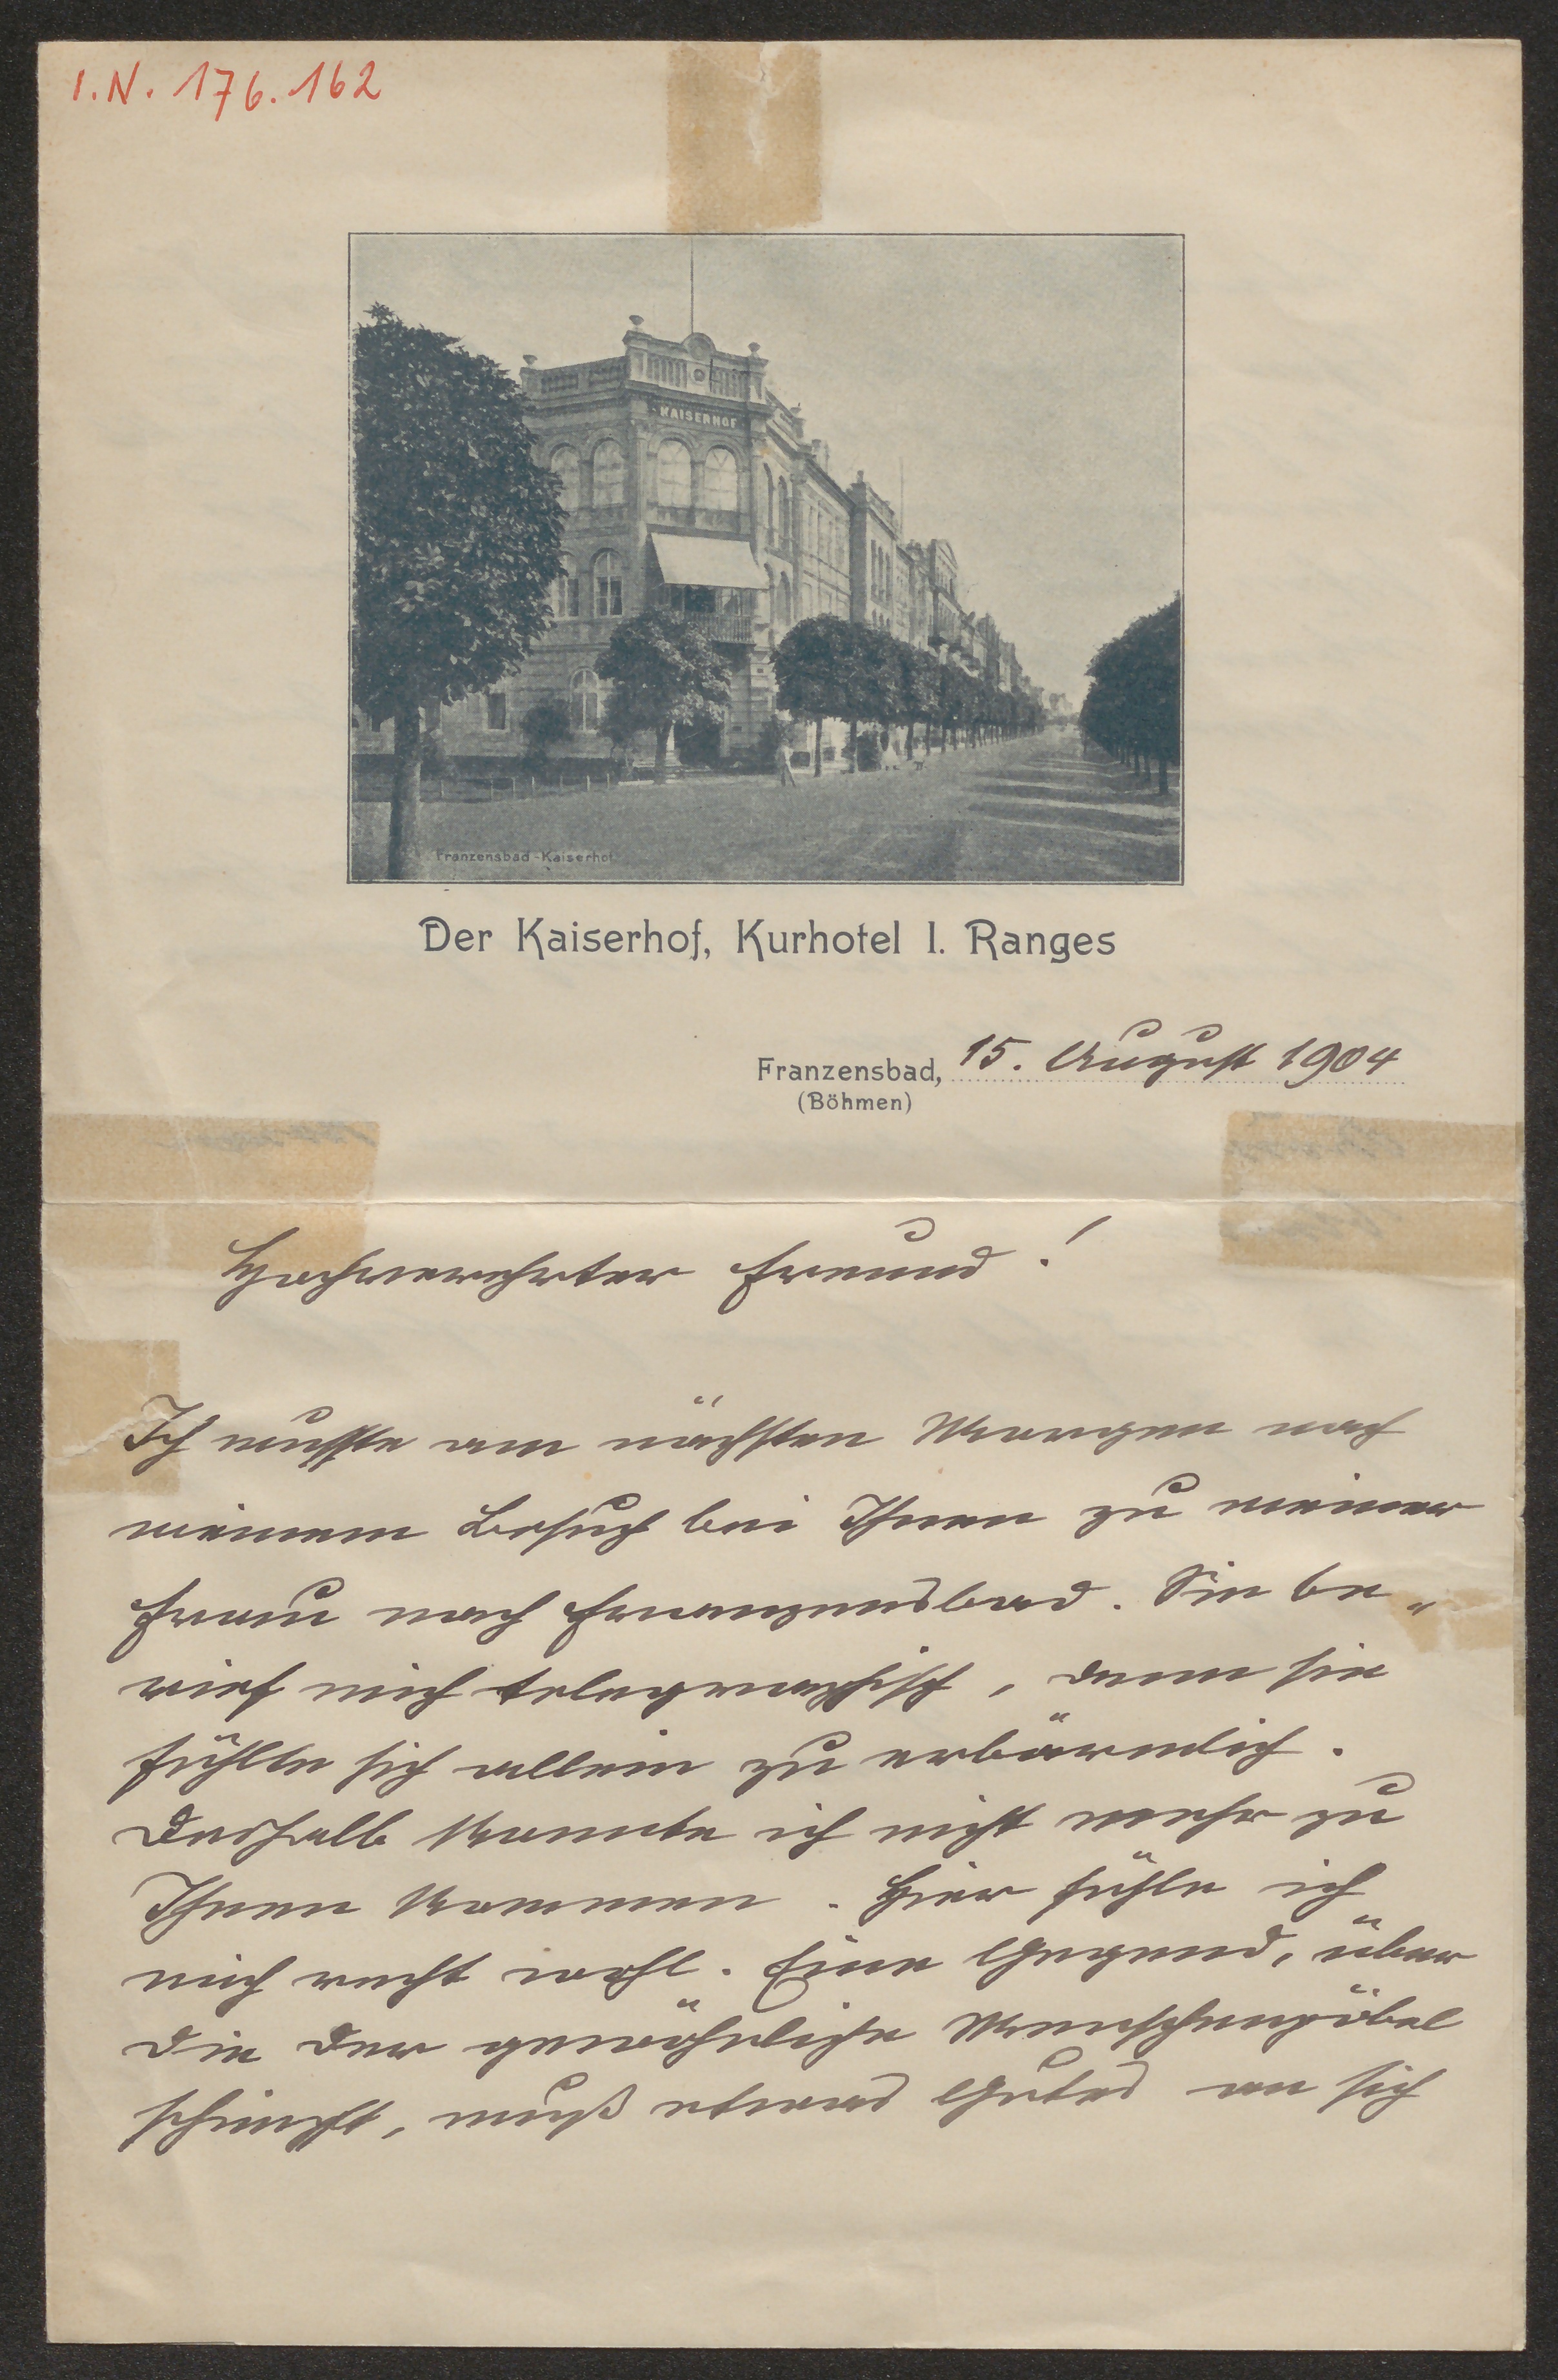 I.N. 176.162
KAISERHOF
Franzensbad-Kaiserhof
Der Kaiserhof, Kurhotel I. Ranges
Franzensbad, 15. August 1904
(Böhmen)
Hochverehrter Freund!
Ich mußte am nächsten Morgen nach
meinem Besuch bei Ihnen zu meiner
Frau nach Franzensbad. Sie be„
rief mich telegraphisch, denn sie
fühlte sich allein zu erbärmlich.
Deshalb konnte ich nicht mehr zu
Ihnen kommen. Hier fühle ich
mich recht wohl. Eine Gegend, über
die der gewöhnliche Menschenpöbel
schimpft, muß etwas Gutes an sich